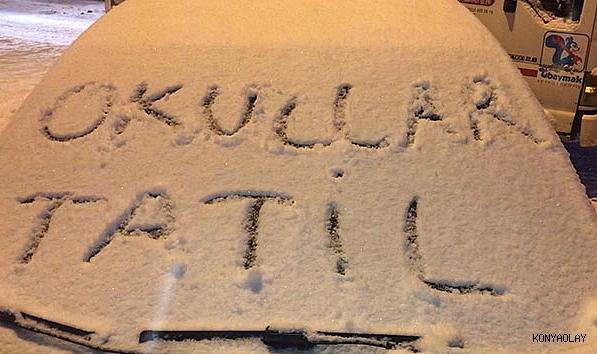 OKULLAR
TATİL
Ubaymak
KONYAOLAY